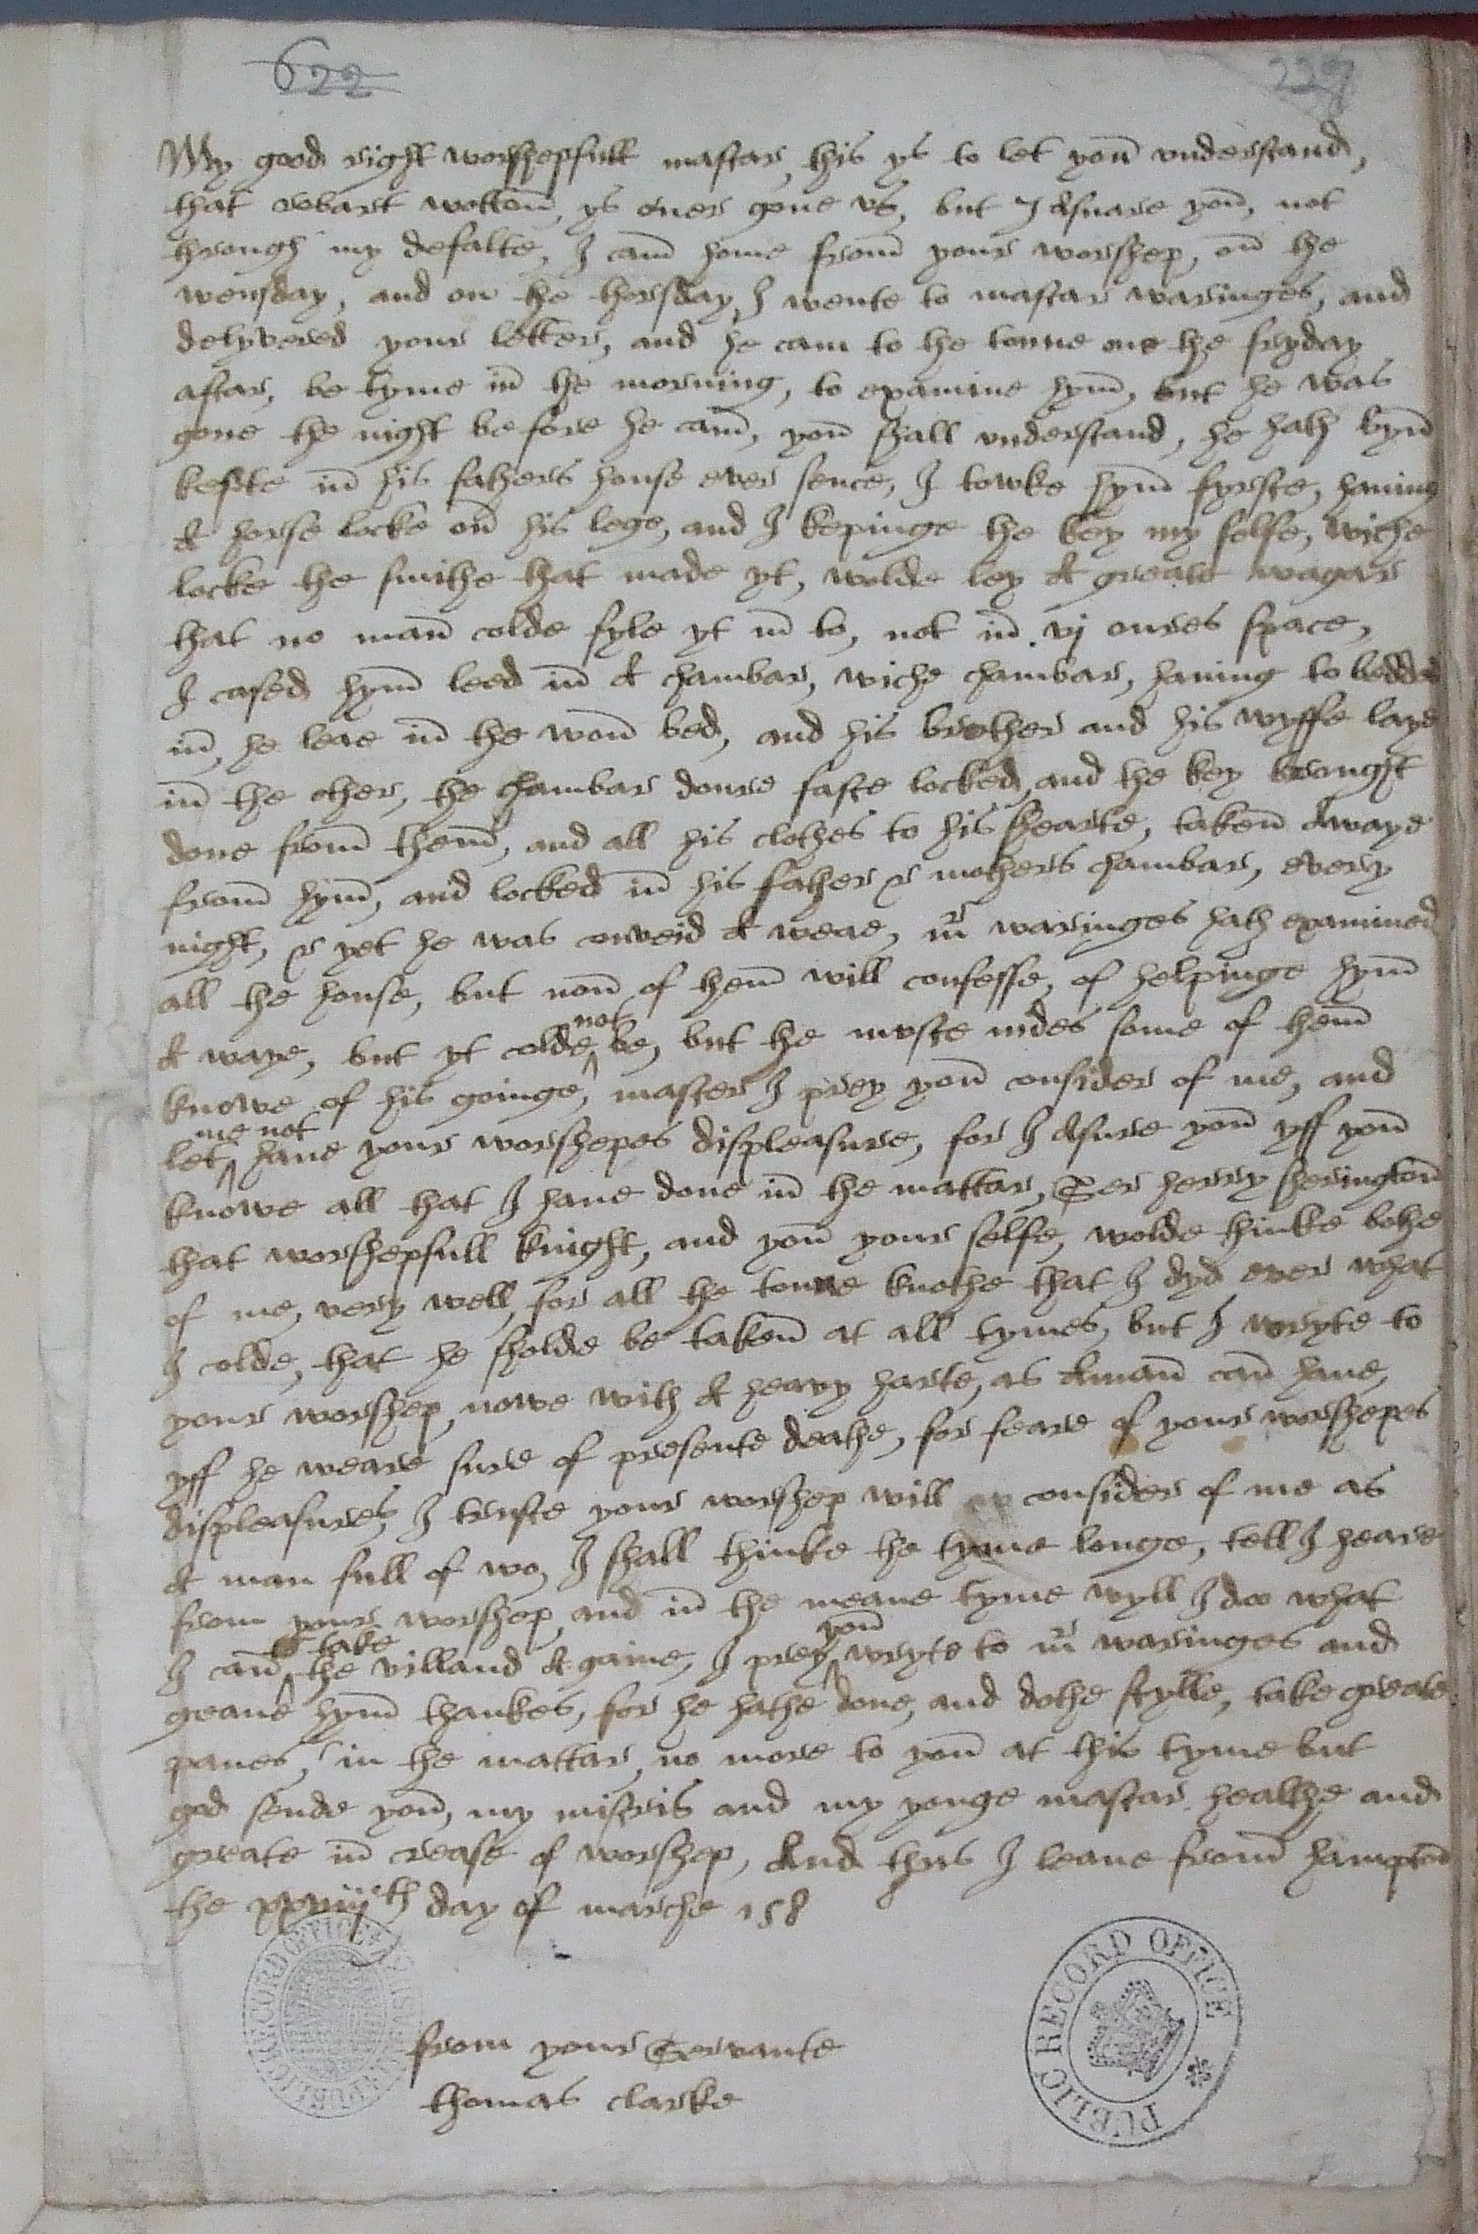 622
229
My good right worshepfull mastar, this ys to let you understand,
that robart wotton, ys over gone us, but I Asuare you, not
through my defalte, I cam home from your worshep, on the
wensday, and on the thorsday, I wente to mastar waringes, and
delyvered your letter, and he cam to the toune one the fryday
aftar, be tyme in the morning, to examine hym, but he was
gone the night before he cam, you shall understand, he hath byn
kepte in his fathers house ever sence, I towke hym fyrste, having
A horse locke on his lege, and I kepinge the key my selfe, wiche
locke the smithe that made yt, wolde ley A greate wagar
that no man colde fyle yt in to, not in vj oures space,
I cased hym leed in A chambar, wiche chambar, having to beddes
in, he leae in the won bed, and his brother and his wyffe laye
in the other, the chambar doure faste locked, and the key brought
done from them, and all his clothes to his Shearte, taken Awaye
from hym, and locked in his father & mothers chambar, every
night, & yet he was conveid A weae, mr waringes hath examined
all the house, but non of them will confesse, of helpinge hym
A waye, but yt colde not be, but the muste nides some of them
knowe of his goinge, master I prey you consider of me, and
let me not have your worshepes displeasure, for I Asure you yff you
knowe all that I have done in the mattar, Ser henry sherington
that worshepfull knight, and you your selfe, wolde thinke bothe
of me, very well, for all the toune knothe that I dyd ever what
I colde, that he sholde be taken at all tymes, but I wryte to
your worshep, nowe with A heavy harte, as A man can have,
yff he weare sure of presente deathe, for feare of your worshepes
displeasures, I truste your worshep will consider of me as
A man full of wo, I shall thinke the tyme longe, tell I heare
from your worshep, and in the meane tyme wyll I doo what
I can to take the villand A gaine, I prey you wryte to mr waringes and
geave hym thankes, for he hathe done, and dothe stylle, take greate
panes, in the mattar, no more to you at this tyme but
god sende you, my mistris and my yonge mastar healthe and
greate in crease of worshep, And thus I leave from hampton
the xxviijth day of marche 158
from your Servante
thomas clarke
PUBLIC RECORD OFFICE
PUBLIC RECORD OFFICE